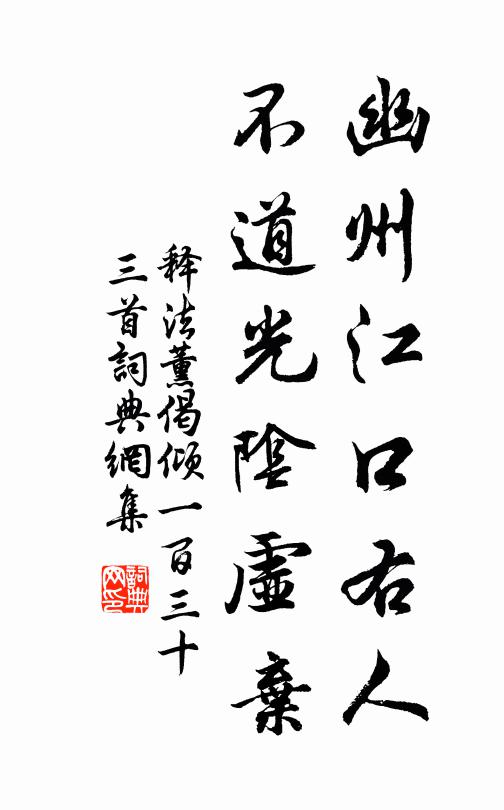 幽州江口右人
不道光陰虛棄
释法薰偈倾一百三十
三首詞典網集
詞典網印